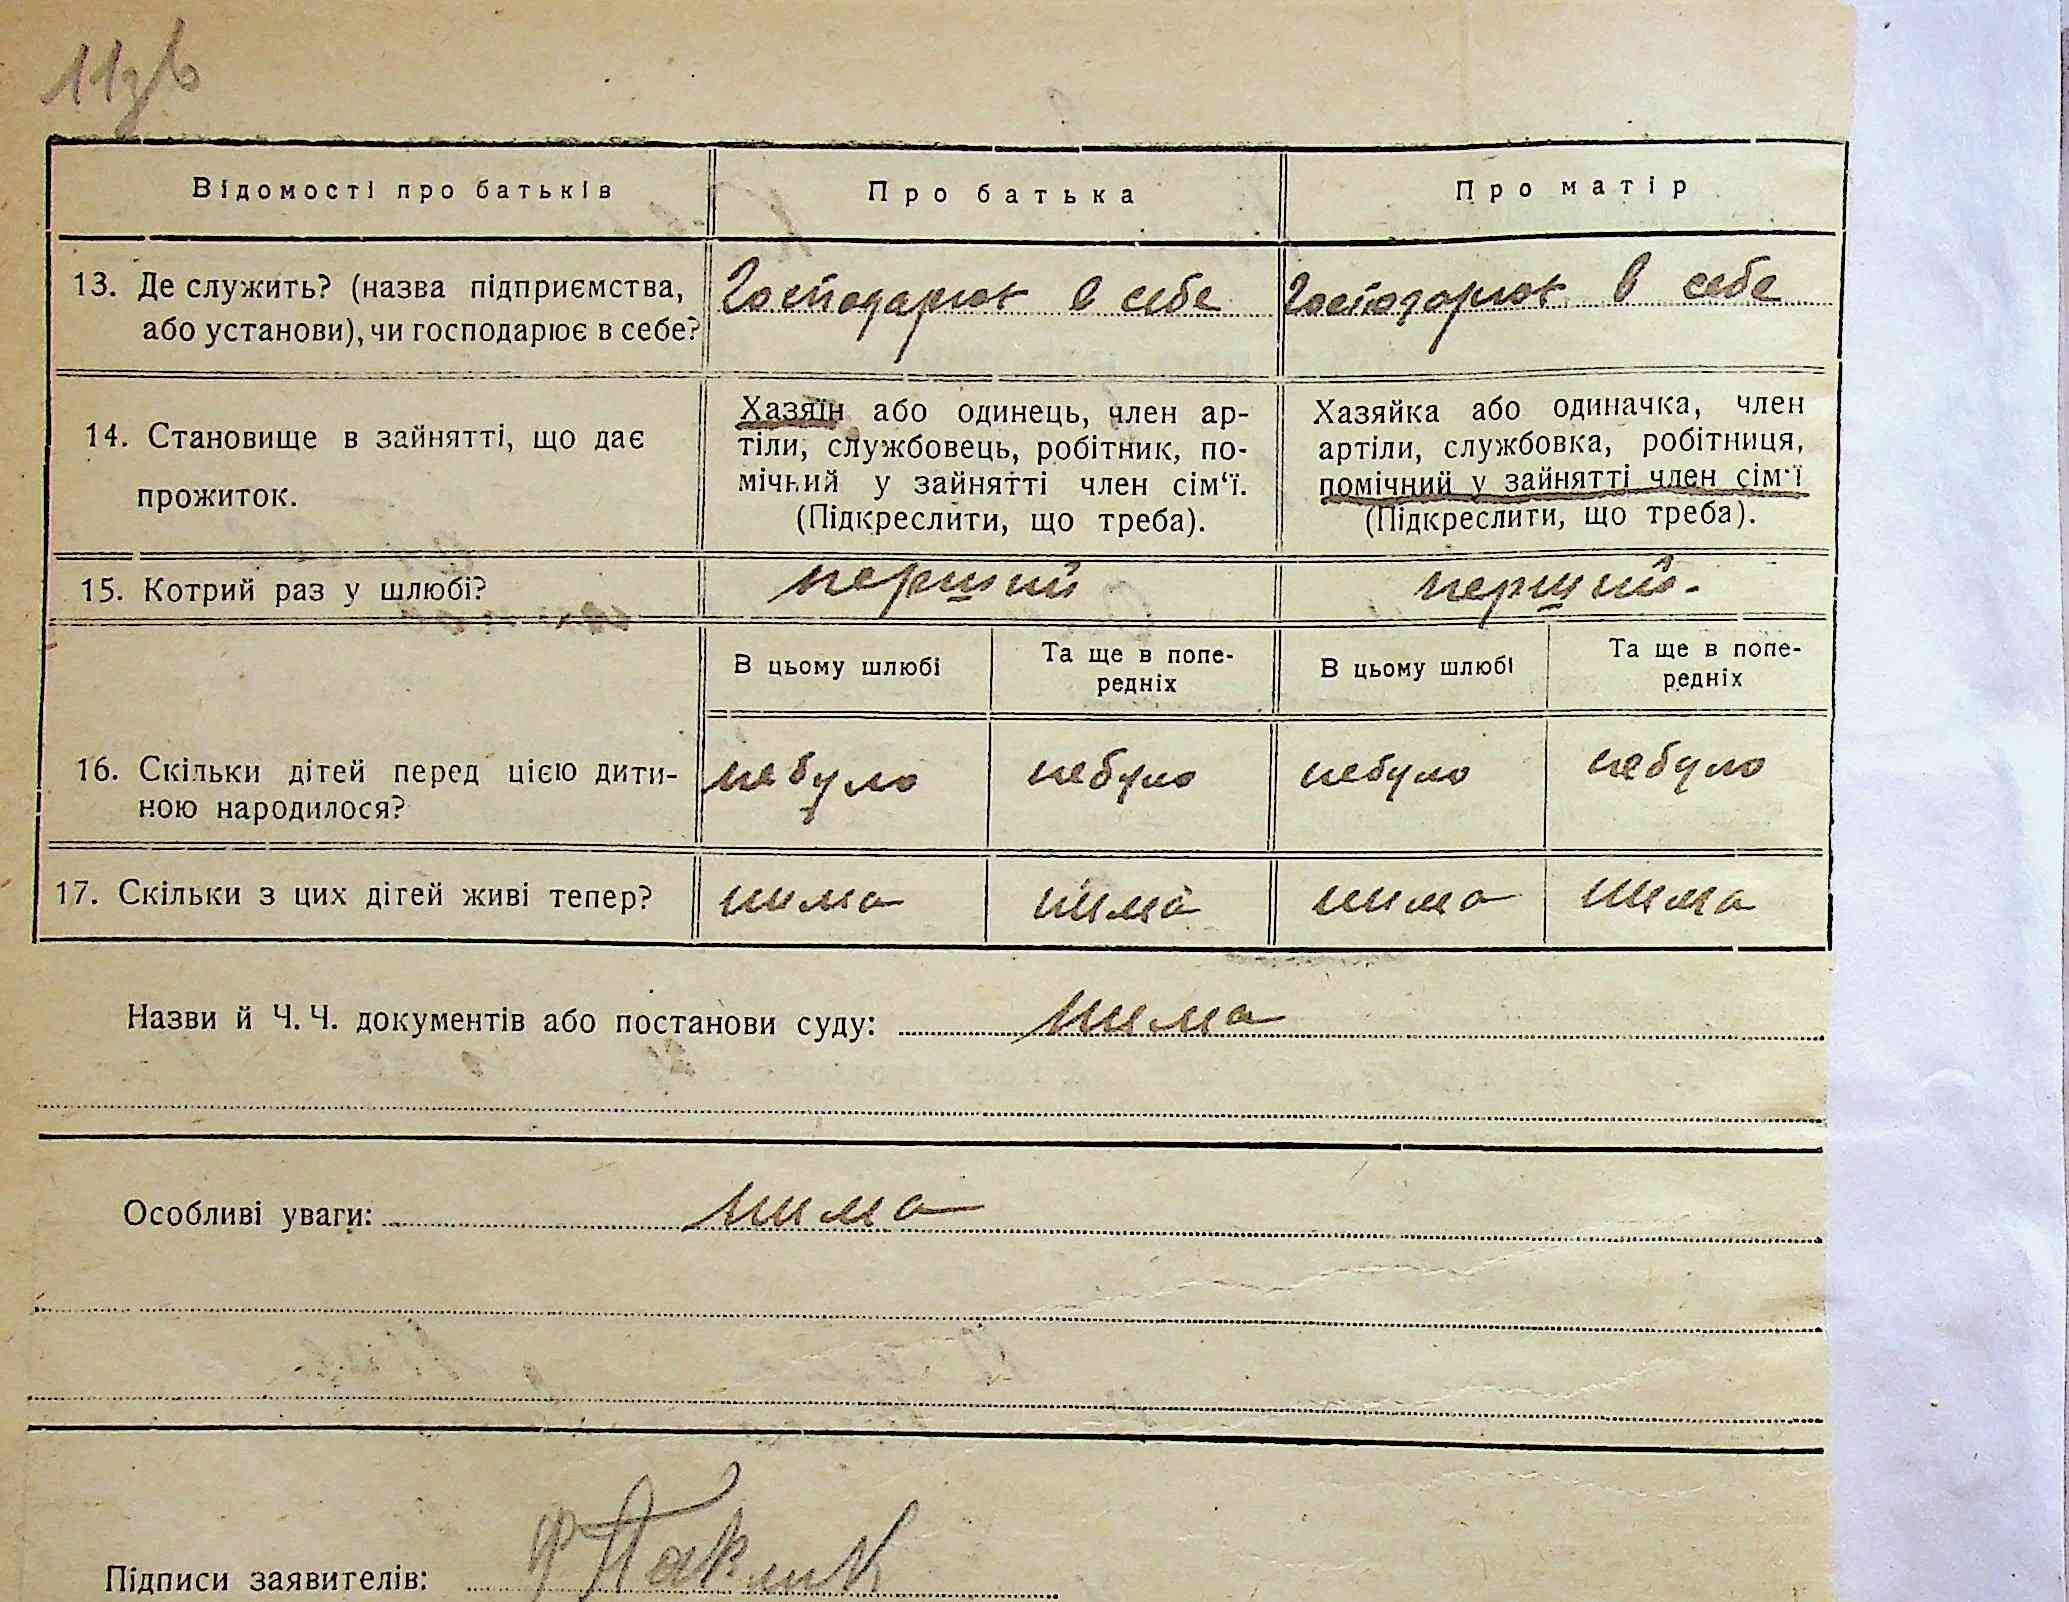 11зв
Відомості про батьків
Про батька
Про матір
13. Де служить? (назва підприємства,
або установи), чи господарює в себе?
Господарює в себе
Господарює в себе
14. Становище в зайнятті, що дає
прожиток.
Хазяїн або одинець, член ар-
тіли, службовець, робітник, по-
мічний у зайнятті член сім‘ї.
(Підкреслити, що треба).
Хазяйка або одиначка, член
артіли, службовка, робітниця,
помічний у зайнятті член сім‘ї
(Підкреслити, що треба).
15. Котрий раз у шлюбі?
перший
перший-
В цьому шлюбі
Та ще в попе-
редніх
В цьому шлюбі
Та ще в попе-
редніх
16. Скільки дітей перед цією дити-
ною народилося?
небуло
небуло
небуло
небуло
17. Скільки з цих дітей живі тепер?
нима
нима
нима
нима
Назви й Ч. Ч. документів або постанови суду: нима
Особливі уваги: нима
Підписи заявителів: